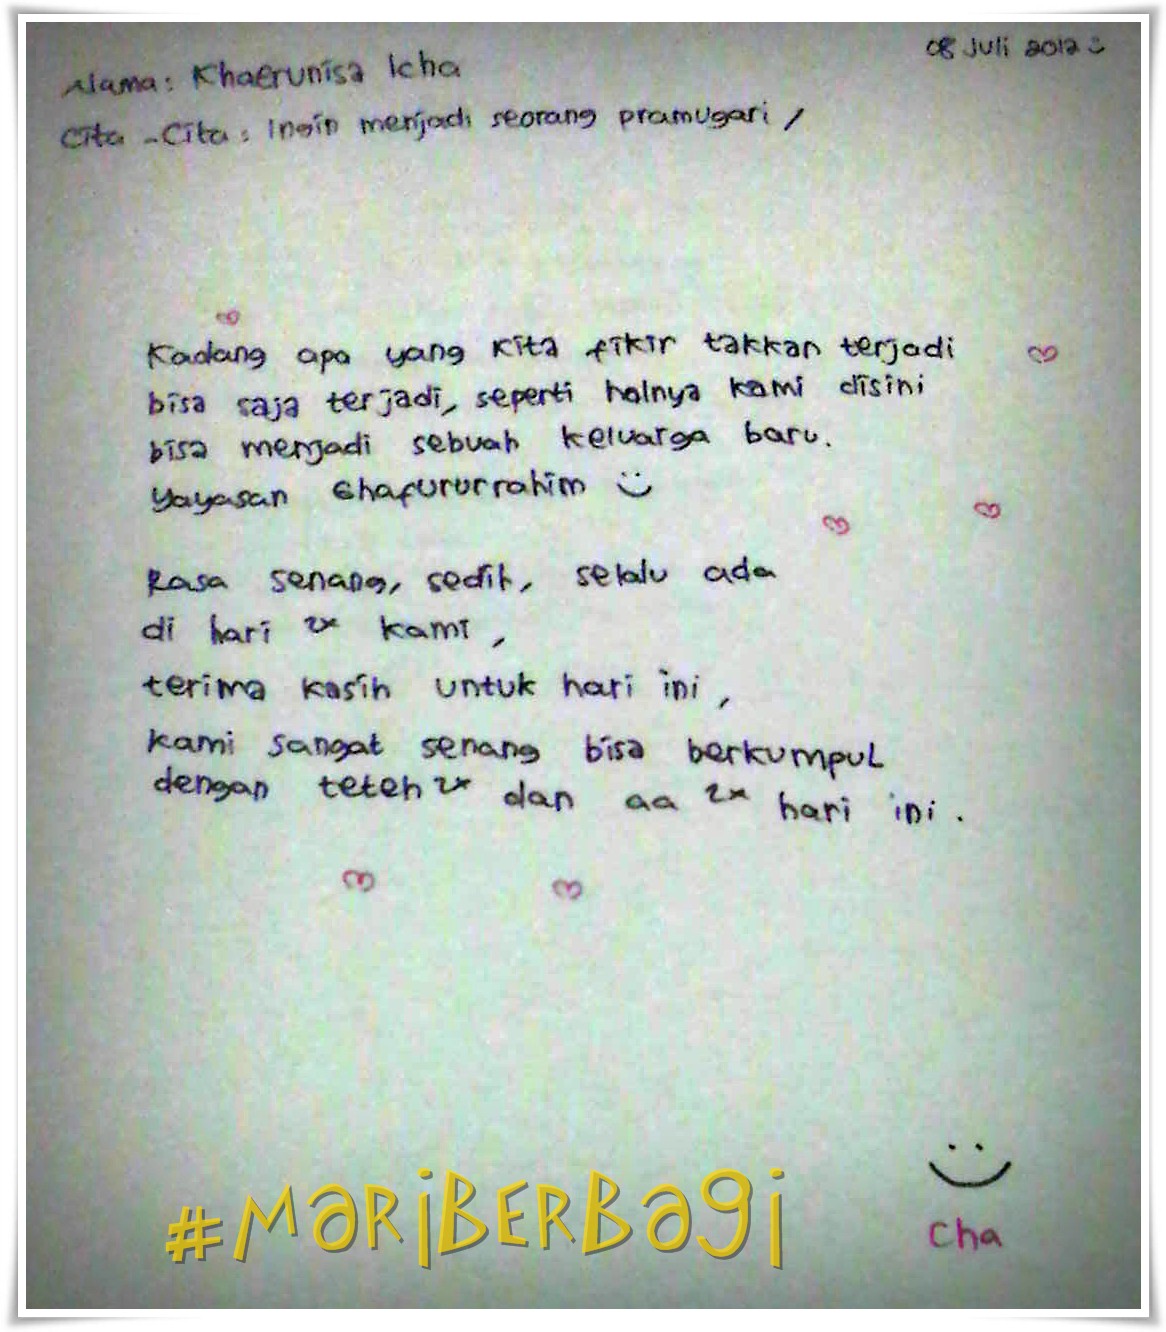 08 Juli 2012
Nama: Khaerunisa Icha
Cita-Cita: Ingin menjadi seorang pramugari /
Kadang apa yang kita fikir takkan terjadi
bisa saja terjadi, seperti halnya kami disini
bisa menjadi sebuah keluarga baru.
Yayasan Ghafururrahim
Rasa senang, sedih, selalu ada
di hari 2x kami,
terima kasih untuk hari ini,
kami sangat senang bisa berkumpul
dengan teteh 2x dan aa 2x hari ini.
#MariBerbagi
Cha